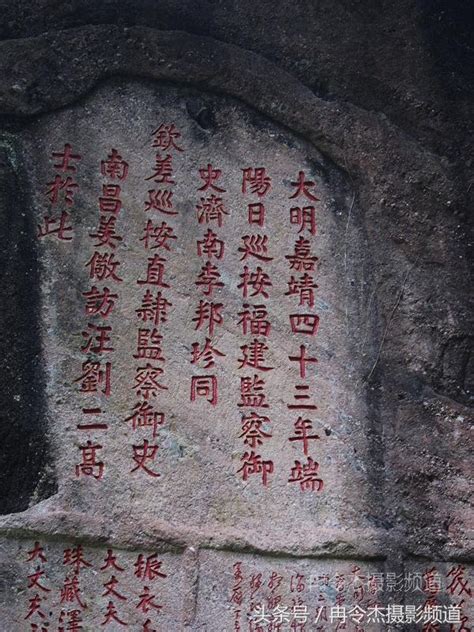 大明嘉靖四十三年端
陽日巡按福建監察御
史濟南李邦珍同
欽差巡按直隸監察御史
南昌姜儆訪汪劉二高
士於此
振衣
大丈夫
珠藏澤
大丈夫
冉令杰摄影频道
头条号 / 冉令杰摄影频道